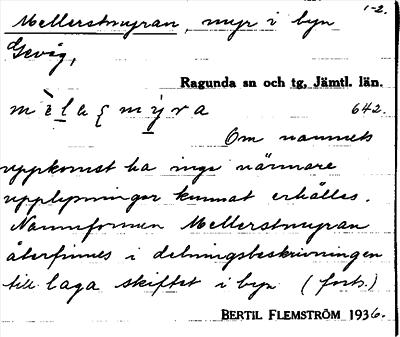 Mellerstmyran, myr i byn 1-2.
Gevåg,
Ragunda sn och tg, Jämtl. län.
642.
Om namnets
uppkomst ha inga närmare
upplysningar kunnat erhållas.
Namnformen Mellerstmyran
återfinnes i delningsbeskrivningen
till laga skiftet i byn (forts.)
BERTIL FLEMSTRÖM 1936.